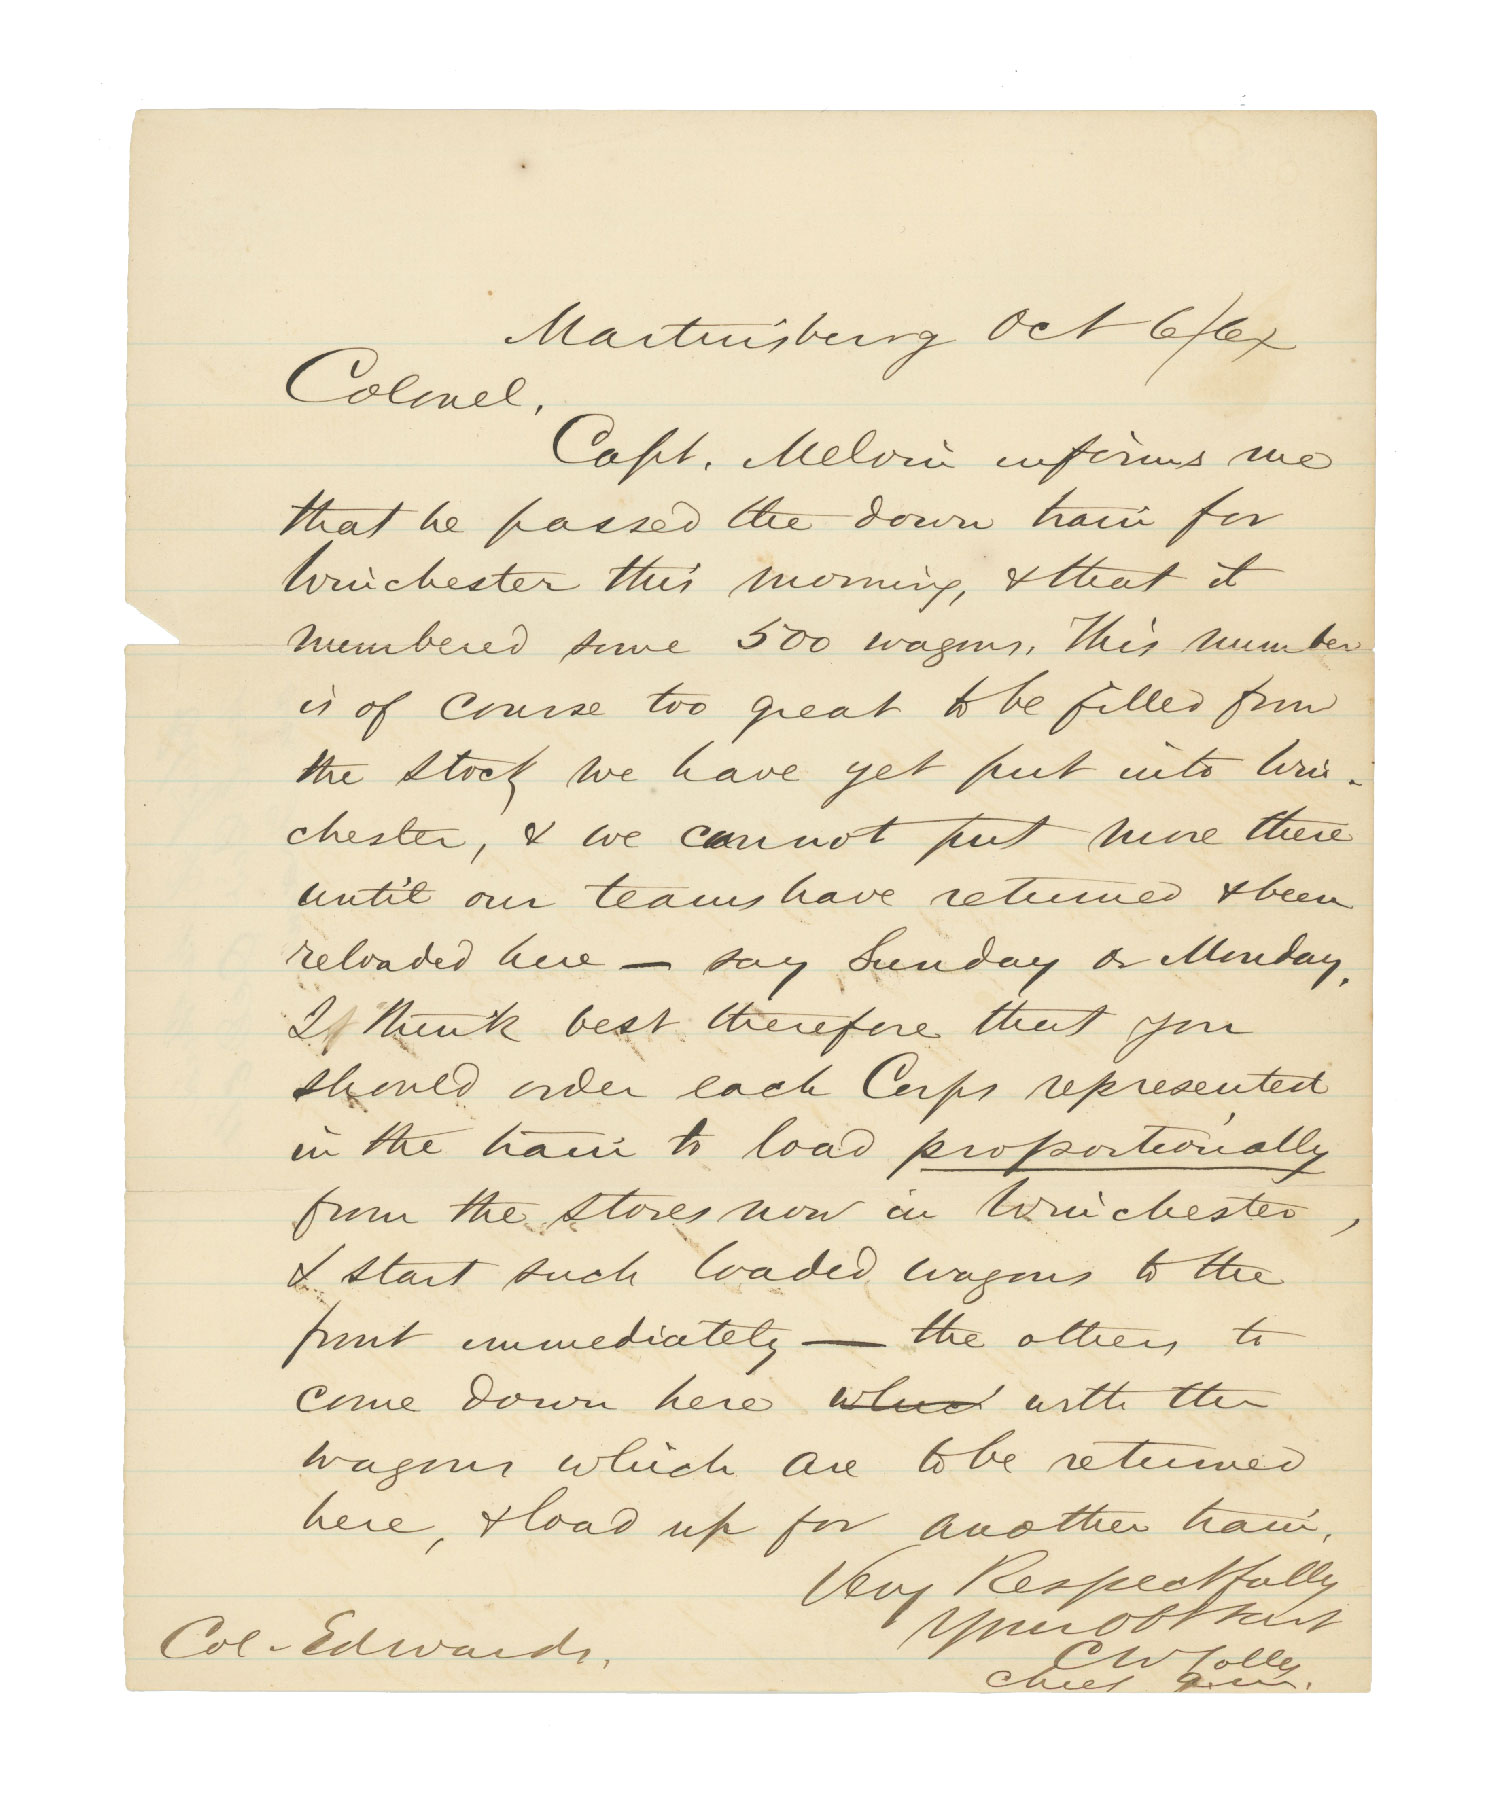 Martinsburg Oct 6/64
Colonel,
Capt. Melvin informs me
that he passed the down train for
Winchester this morning, & that it
numbered some 500 wagons. This number
is of course too great to be filled from
the stock we have yet put into Win-
chester, & we cannot put more there
until our teams have returned & been
reloaded here — say Sunday or Monday.
I think best therefore that you
should order each Corps represented
in the train to load proportionally
from the stores now in Winchester,
& start such loaded wagons to the
front immediately — the others to
come down here with the
wagons which are to be returned
here, & load up for another train.
Very Respectfully
Your Obt Servt
Col. Edwards.
C W Tolles
Chief Q.M.